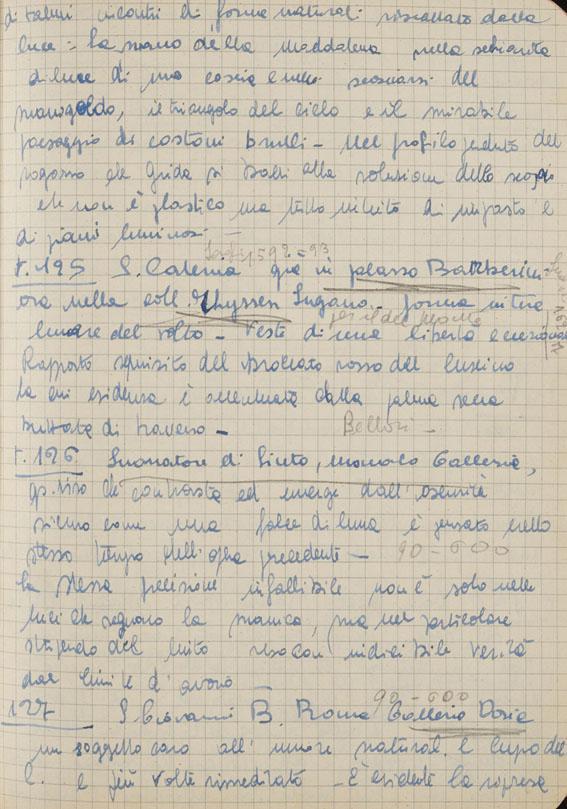 di talune incontri di forme naturali riscattato dalla
luce: la mano della Maddalena nella schiarita
di luce di una coscia del
manigoldo, il triangolo del cielo e il mirabile
paesaggio dei costoni brulli - Nel profilo perduto del
ragazzo che grida si badi alla soluzione dello scorcio
che non è plastico ma tutto di impasto e
di piani luminosi -
1592=93
t. 195 S. Caterina già in palazzo Barberini
ora nella coll Thyssen Lugano - forma
lunare del volto - Vesti di una libertà
per il del Monte
Rapporto squisito del broccato rosso del cuscino
la cui evidenza è accentuata dalla palma secca
buttata di traverso -
Bellori -
t. 196 Suonatore di Liuto, Monaco Galleria,
che contrasta ed emerge dall' oscurità
come una falce di luna è pensato nello
stesso tempo dell'opera precedente -
90-600
la stessa precisione infallibile non è solo nelle
luci che segnano la manica, ma nel particolare
stupendo del liuto reso con indicibile verità
dal d'avorio -
90-600
127 S Giovanni B. Roma Galleria Doria
un soggetto caro all' umore natural. e cupo del
C. e più volte rimeditato - È evidente la ripresa